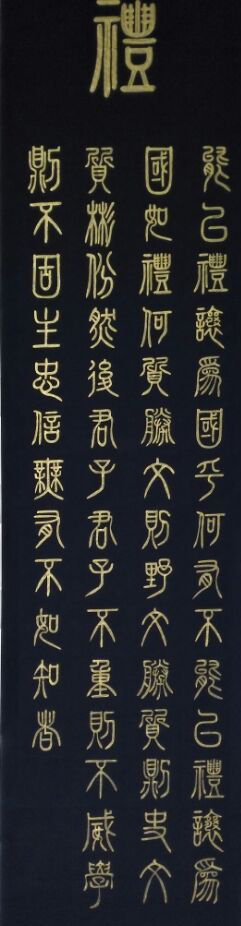 禮
能以禮讓為國乎何有不能以禮讓為
國如禮何質勝文則野文勝質則史文
質彬份然後君子君子不重則不威學
則不固主忠信無有不如知者